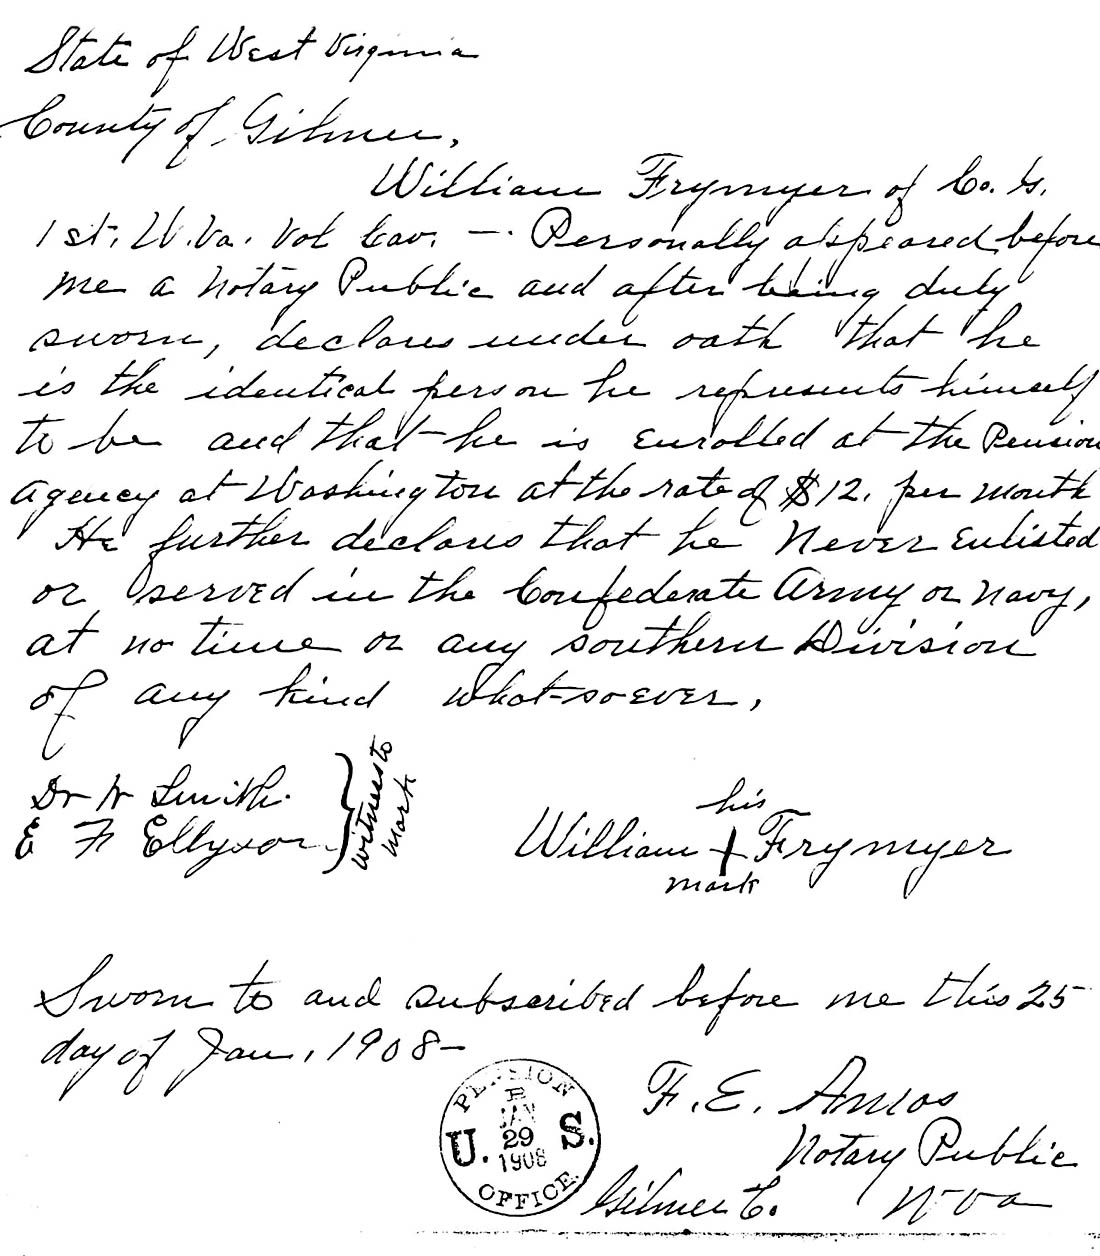 State of West Virginia
County of Gilmer,
William Frymyer of Co. G.
1st. W.Va. Vol Cav. — Personally appeared before
me a Notary Public and after being duly
sworn, declares under oath that he
is the identical person he represents himself
to be and that he is Enrolled at the Pension
Agency at Washington at the rate of $12. per month
He further declares that he Never Enlisted
or served in the Confederate Army or Navy,
at no time or any southern Division
of any kind what-so-ever,
Dr W Smith
E F Ellyson
witness to
mark
his
William + Frymyer
mark
Sworn to and subscribed before me this 25
day of Jan, 1908—
F. E. Amos
Notary Public
Gilmer C. W Va
PENSION
JAN
29
U. S.
1908
OFFICE